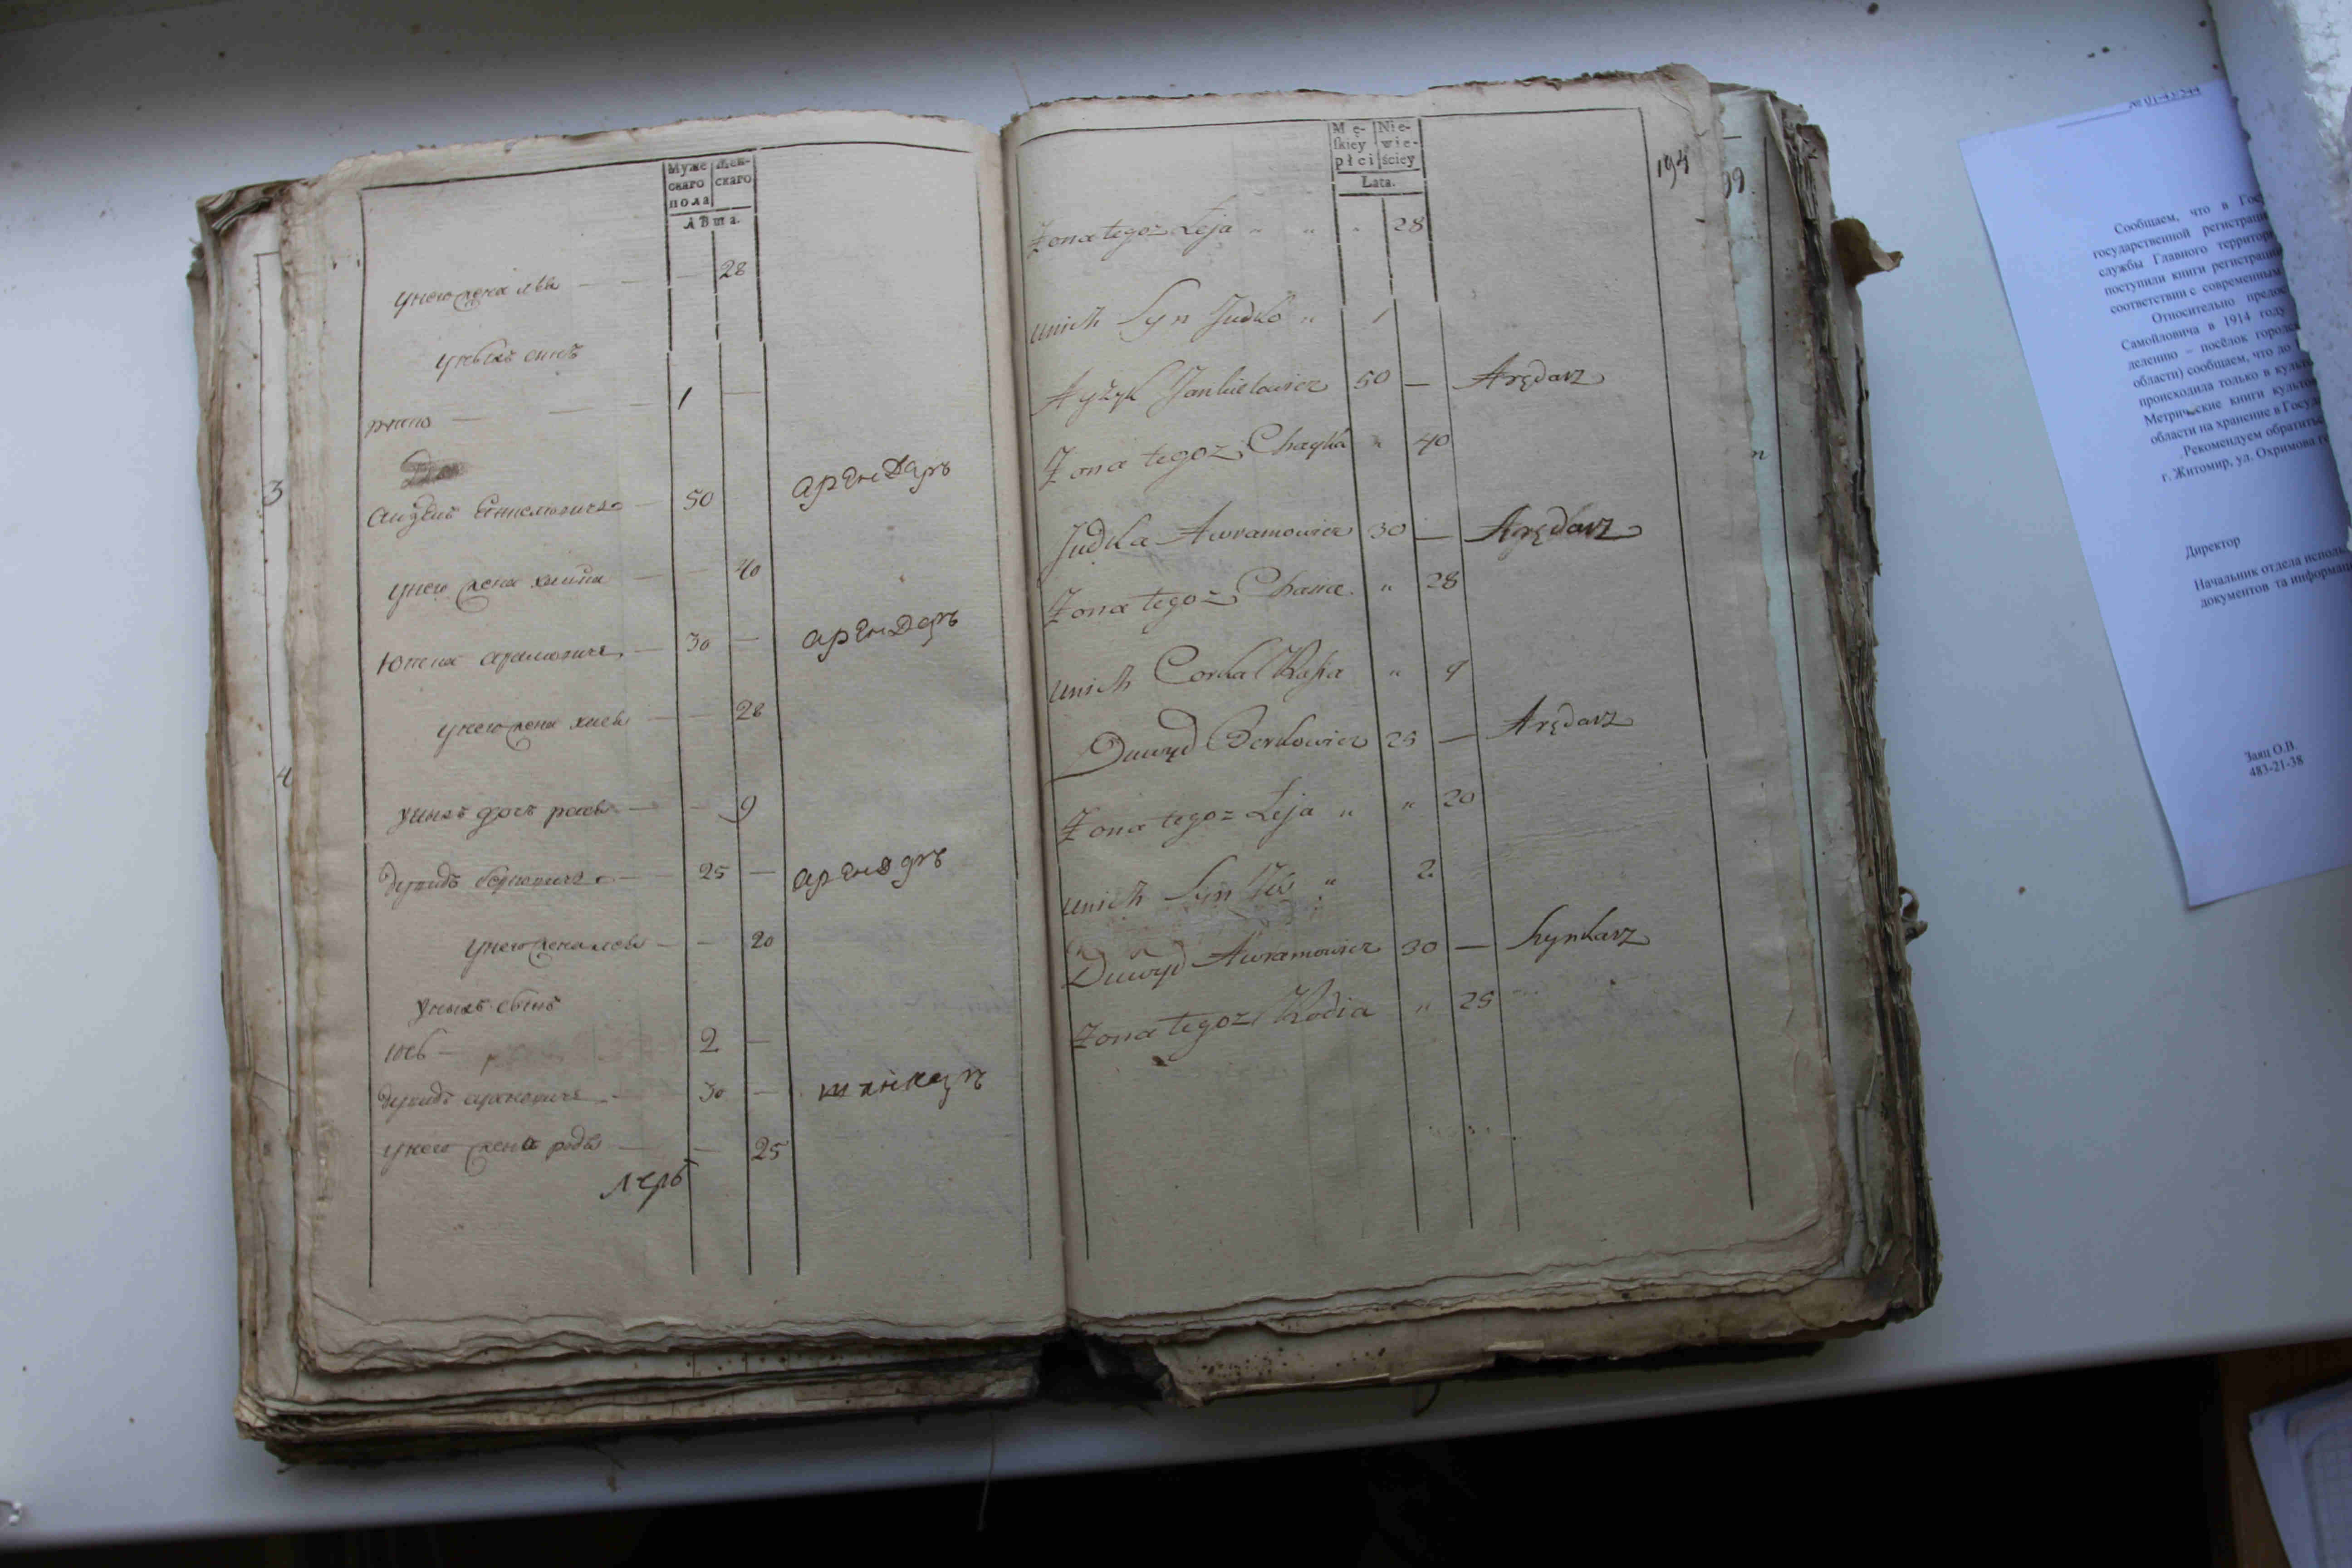 Муже
скаго
пола
Жен-
скаго
Лѣта.
унего жена лѣя — — — 28
унихъ сынъ
— — 1 —
50 арендаръ
унего жена хайка — — 40
Юдка аврамовичъ — 30 — арендаръ
унего жена хася — — 28
унихъ дочь рася — — 9
Дувидъ берковичъ — 25 — арендаръ
унего жена лея — — 20
унихъ сынъ
2 —
Дувидъ 30 — шинкаръ
унего жена родя — — 25
3
4
Mę-
skiey
płci
Nie-
wie-
ściey
Lata.
194
99.
Żona tegoż Leja " " " 28
unich Syn Judko " 1
Ayzyk Jankielowicz 50 — Arędarz
Żona tegoż Chayka " 40
Judka Awramowicz 30 — Arędarz
Żona tegoż Chasia " 28
unich Corka Rasia " 9
Duwyd Berkowicz 25 — Arędarz
Żona tegoż Leja " " 20
unich Syn " 2
Duwyd Awramowicz 30 — Szynkarz
Żona tegoż Rodia " 25
№ 01-43/244
Сообщаем, что в
государственной регистрации
службы Главного
поступили книги регистрации
соответствии с современным
Относительно
Самойловича в 1914 году
делению – посёлок
области) сообщаем, что до
происходила только в
Метрические книги
области на хранение в
Рекомендуем
г. Житомир, ул. Охримова
Директор
Начальник отдела
документов та
Заяц О.В.
483-21-38